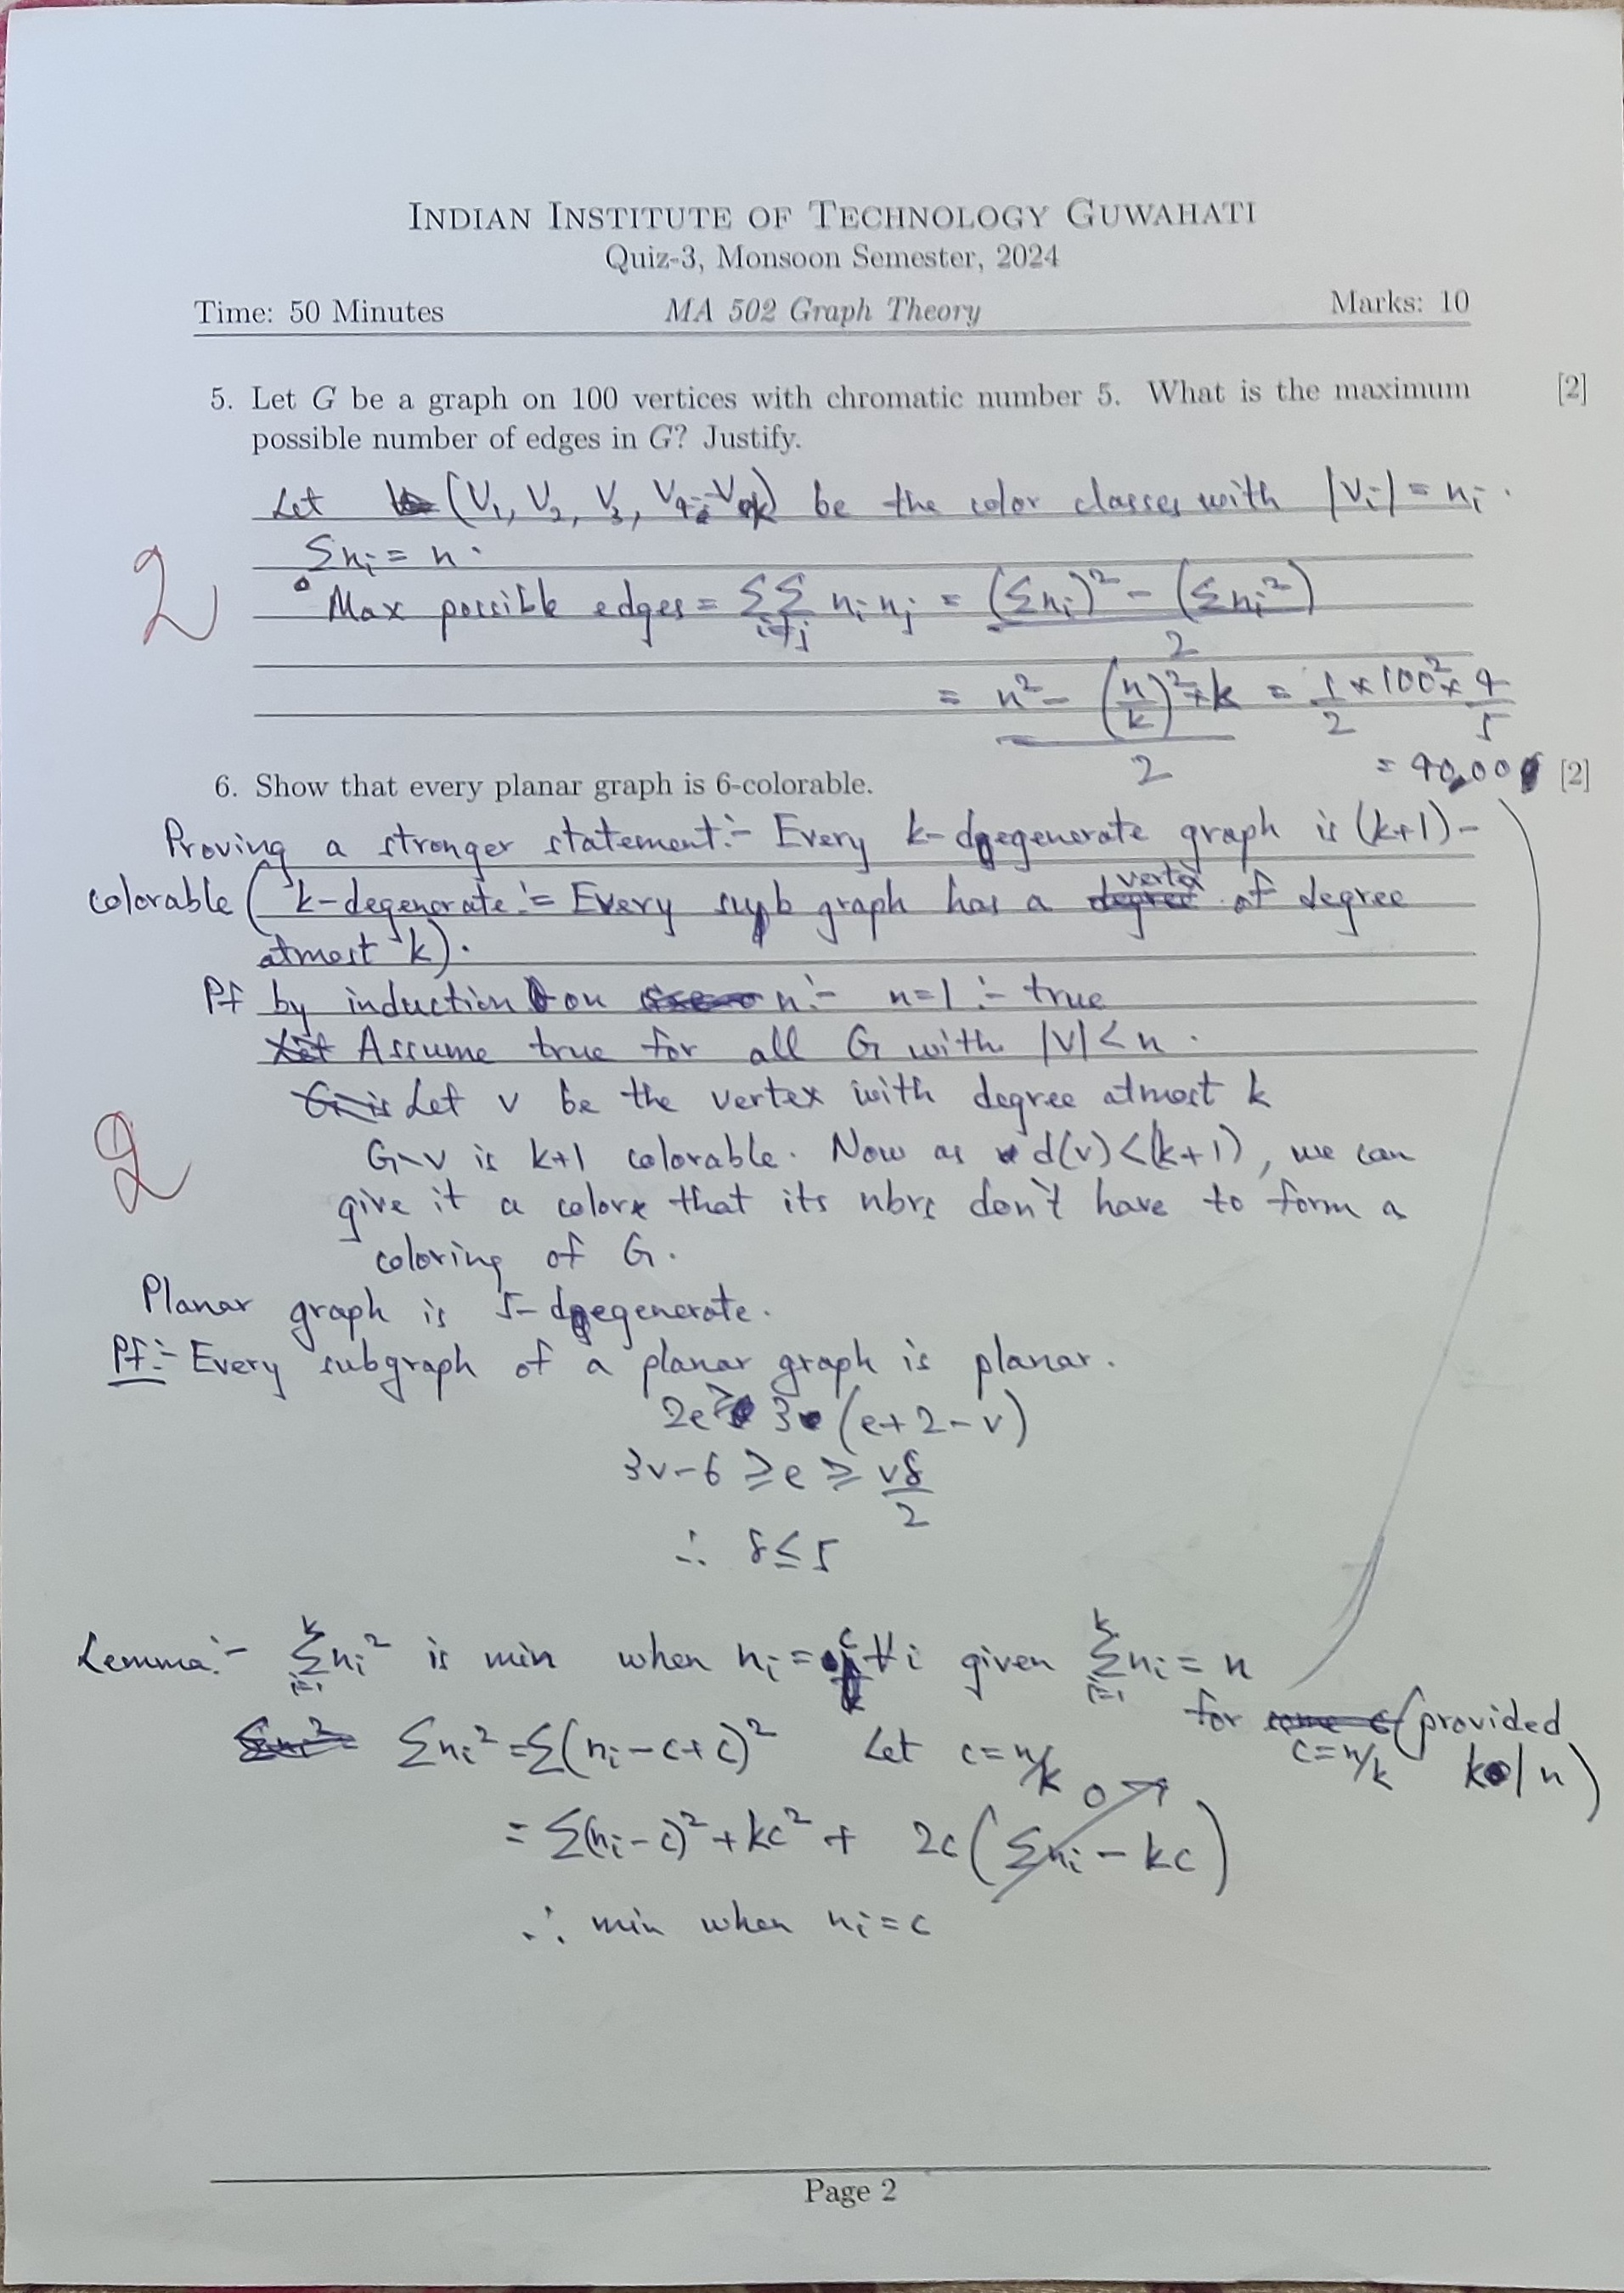 INDIAN INSTITUTE OF TECHNOLOGY GUWAHATI
Quiz-3, Monsoon Semester, 2024
Time: 50 Minutes MA 502 Graph Theory Marks: 10
5. Let G be a graph on 100 vertices with chromatic number 5. What is the maximum [2]
possible number of edges in G? Justify.
Let (V₁, V₂, V₃, V₄... Vₖ) be the color classes with |Vᵢ| = nᵢ.
Σnᵢ = n.
2
Max possible edges = ΣΣ_{i≠j} nᵢ nⱼ = ((Σnᵢ)² - (Σnᵢ²))/2
= (n² - (n/k)² × k)/2 = 1/2 × 100² × 4/5
= 40,00
6. Show that every planar graph is 6-colorable. [2]
Proving a stronger statement:- Every k-degenerate graph is (k+1)-
colorable (k-degenerate:= Every sub graph has a vertex of degree
atmost k).
Pf by induction on n:- n=1 :- true
Assume true for all G with |V| < n.
Let v be the vertex with degree atmost k
G\v is k+1 colorable. Now as d(v) < (k+1), we can
2
give it a color that its nbrs don't have to form a
coloring of G.
Planar graph is 5-degenerate.
Pf:- Every subgraph of a planar graph is planar.
2e ≥ 3(e+2-v)
3v-6 ≥ e ≥ vδ/2
∴ δ ≤ 5
Lemma:- Σ_{i=1}^{k} nᵢ² is min when nᵢ = c ∀ i given Σ_{i=1}^{k} nᵢ = n
for c = n/k (provided k | n)
Σnᵢ² = Σ(nᵢ - c + c)² Let c = n/k
= Σ(nᵢ - c)² + kc² + 2c(Σnᵢ - kc) 0
∴ min when nᵢ = c
Page 2